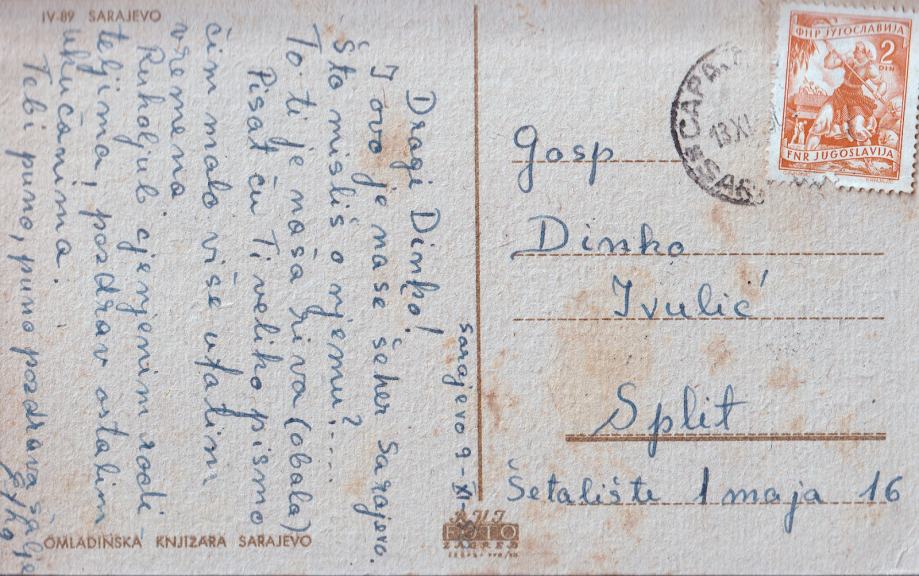 IV-89 SARAJEVO
Sarajevo 9-XI-
Dragi Dinko!
I ovo je naše šeher Sarajevo.
Što misliš o njemu?....
To ti je naša riva (obala)
Pisat ću Ti veliko pismo
čim malo više ufatim
vremena.
Rukoljub cjenjenim rodi
teljima i pozdrav ostalim
ukućanima.
Tebi puno, puno pozdrava šalje
OMLADINSKA KNJIŽARA SARAJEVO
FOTO
ZAGREB
ФНР ЈУГОСЛАВИЈА
2
DIN
FNR JUGOSLAVIJA
13 XI
Gosp
Dinko
Ivulić
Split
Šetalište 1 maja 16